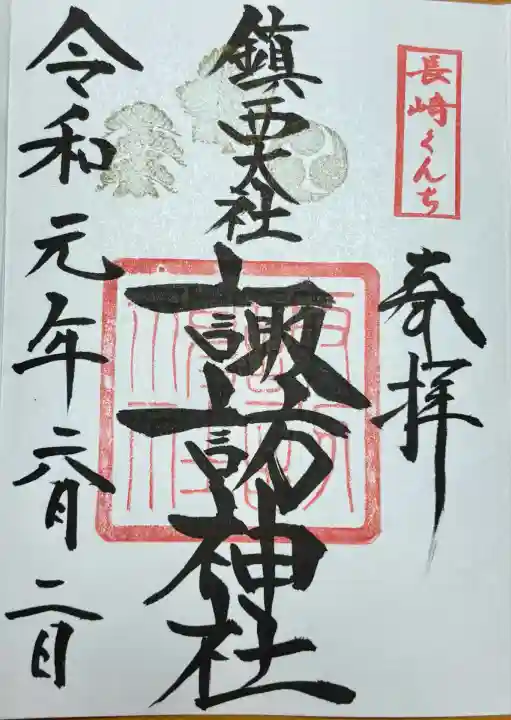 長崎くんち
奉拝
鎮西大社
諏訪神社
令和元年六月二日